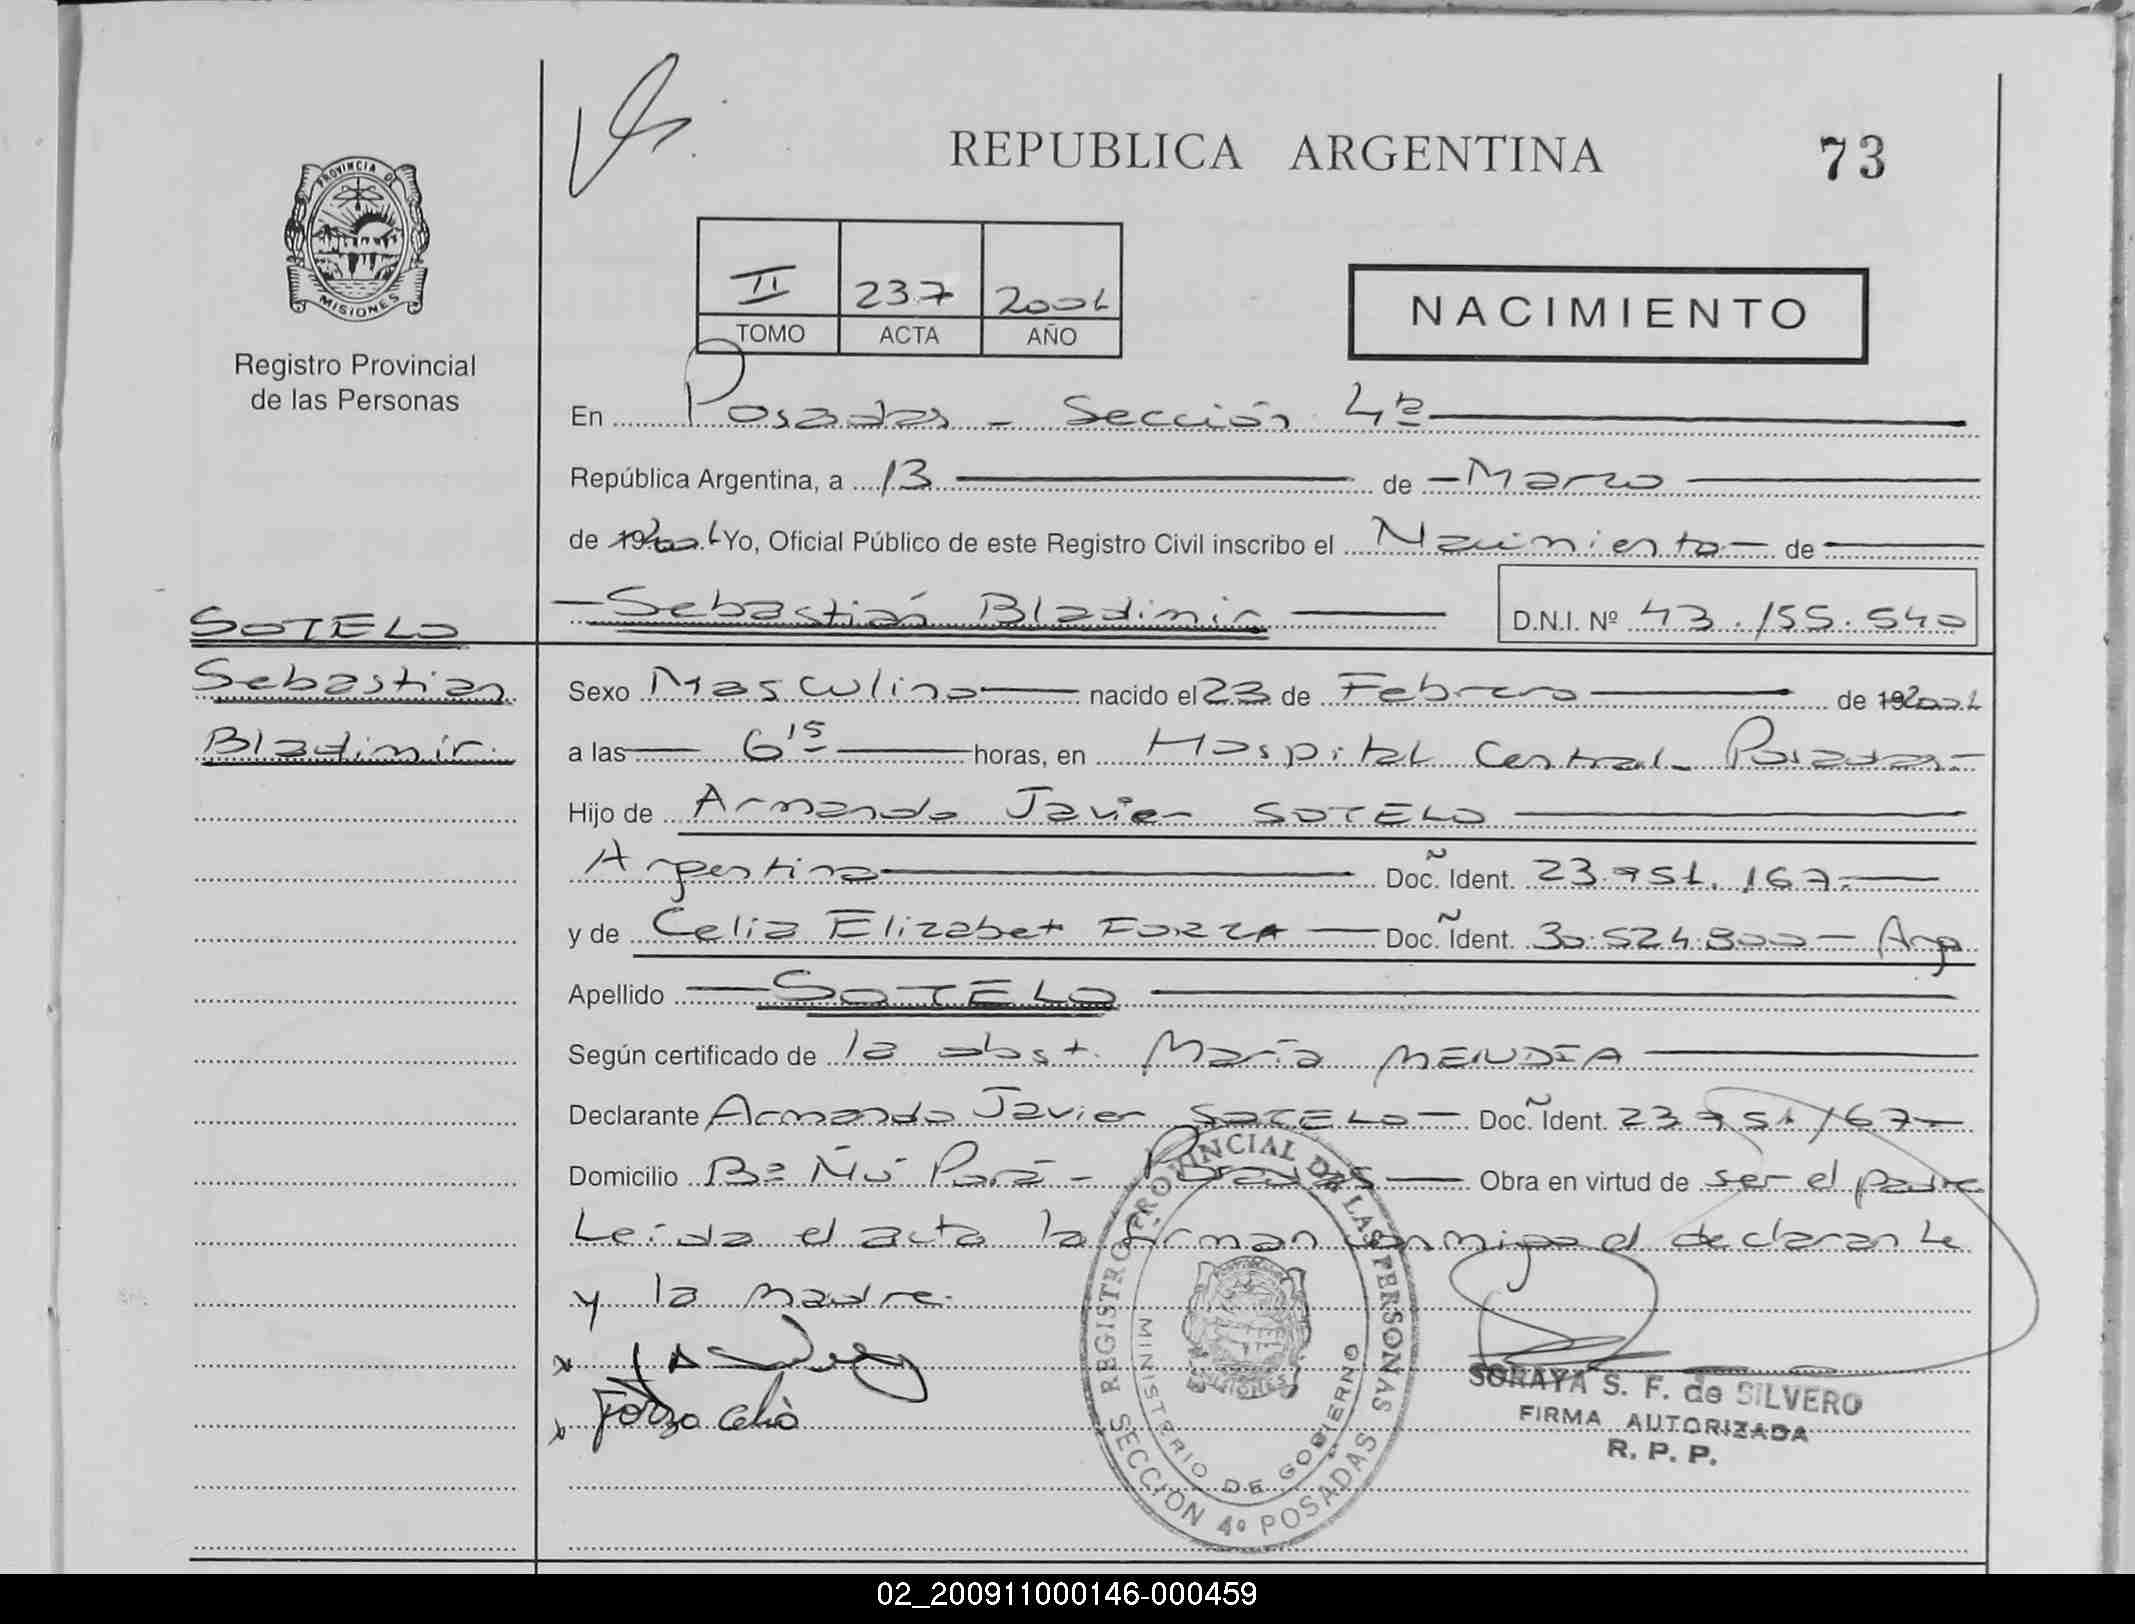 REPUBLICA ARGENTINA
73
PROVINCIA DE
MISIONES
Registro Provincial
de las Personas
II 237 2001
TOMO ACTA AÑO
NACIMIENTO
En Posadas - Sección 4ª
República Argentina, a 13 de Marzo
de 19 2001 Yo, Oficial Público de este Registro Civil inscribo el Nacimiento de
Sebastián Bladimir
D.N.I. Nº 43.155.540
SOTELO
Sebastian
Bladimir.
Sexo Masculino nacido el 23 de Febrero de 19 2001
a las 6 15 horas, en Hospital Central - Posadas -
Hijo de Armando Javier SOTELO
Argentina Doc. Ident. 23.751.167.
y de Celia Elizabet FORZA Doc. Ident. 30.524.800 - Arg
Apellido SOTELO
Según certificado de la obst. María MENDIA
Declarante Armando Javier SOTELO Doc. Ident. 23.751.167
Domicilio Bº Ñú Porá - Posadas Obra en virtud de ser el padre
Leída el acta la firman conmigo el declarante
y la madre.
x
x Forza Celia
REGISTRO PROVINCIAL DE LAS PERSONAS
MINISTERIO DE GOBIERNO
MISIONES
SECCION 4º POSADAS
SORAYA S. F. de SILVERO
FIRMA AUTORIZADA
R. P. P.
02_200911000146-000459